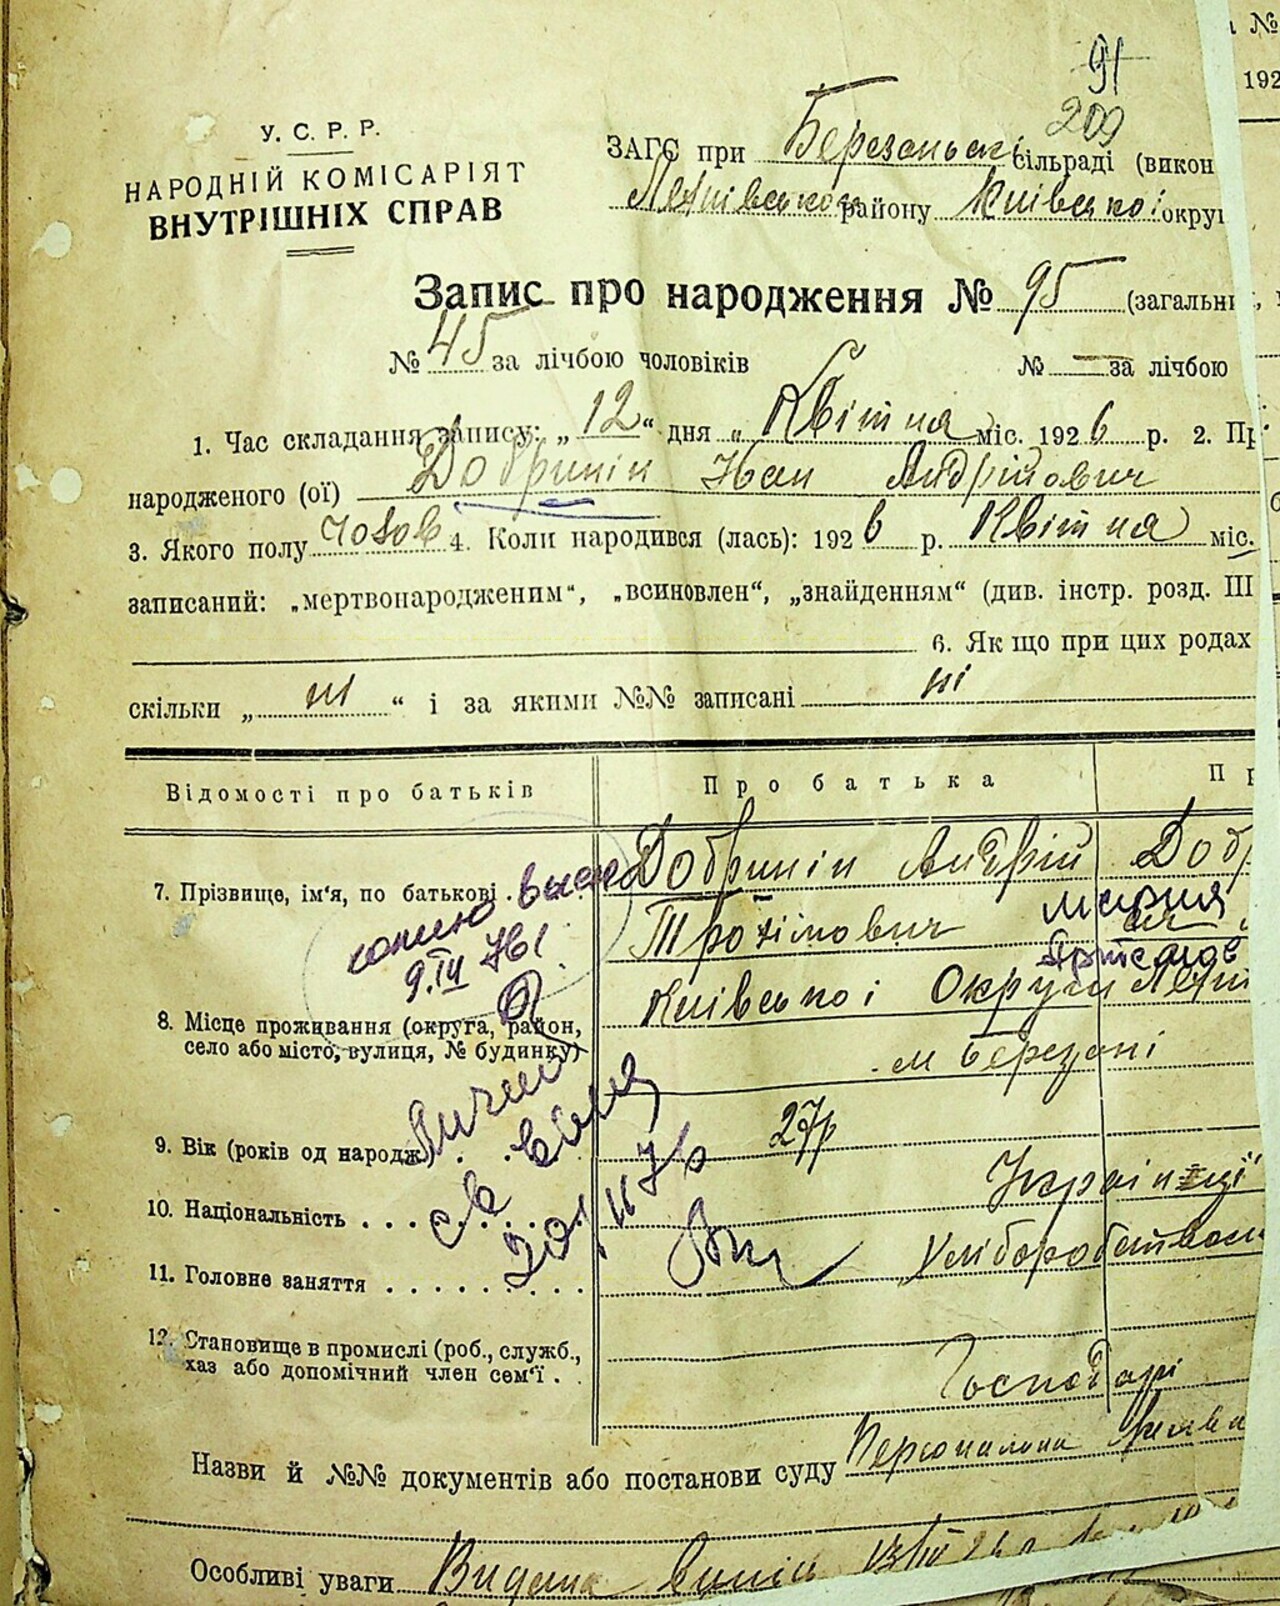 91
209
У. С. Р. Р.
НАРОДНІЙ КОМІСАРІЯТ
ВНУТРІШНІХ СПРАВ
ЗАГС при Березанські сільраді (викон
району Київської округ
Запис про народження № 95 (загальн
№ 45 за лічбою чоловіків № — за лічбою
1. Час складання запису: „ 12 “ дня „ Квітня міс. 1926 р. 2. Пр
народженого (ої) Добринін Иван Андрійович
3. Якого полу чолов 4. Коли народився (лась): 1926 р. Квітня міс.
записаний: „мертвонародженим“, „всиновлен“, „знайденням“ (див. інстр. розд. III
6. Як що при цих родах
скільки „ ні “ і за якими №№ записані ні
Відомості про батьків Про батька Пр
7. Прізвище, ім‘я, по батькові . Добринін Андрій Добр
Трохімович Мария
8. Місце проживання (округа, район, Київської Округи
село або місто, вулиця, № будинку) м Березані
9. Вік (років од народж.) . . 27р
10. Національність . . . . Українці
11. Головне заняття . . . . Хліборобство
12. Становище в промислі (роб., служб.,
хаз або допомічний член сем‘ї . . Господарі
Назви й №№ документів або постанови суду
Особливі уваги Видана
№
192